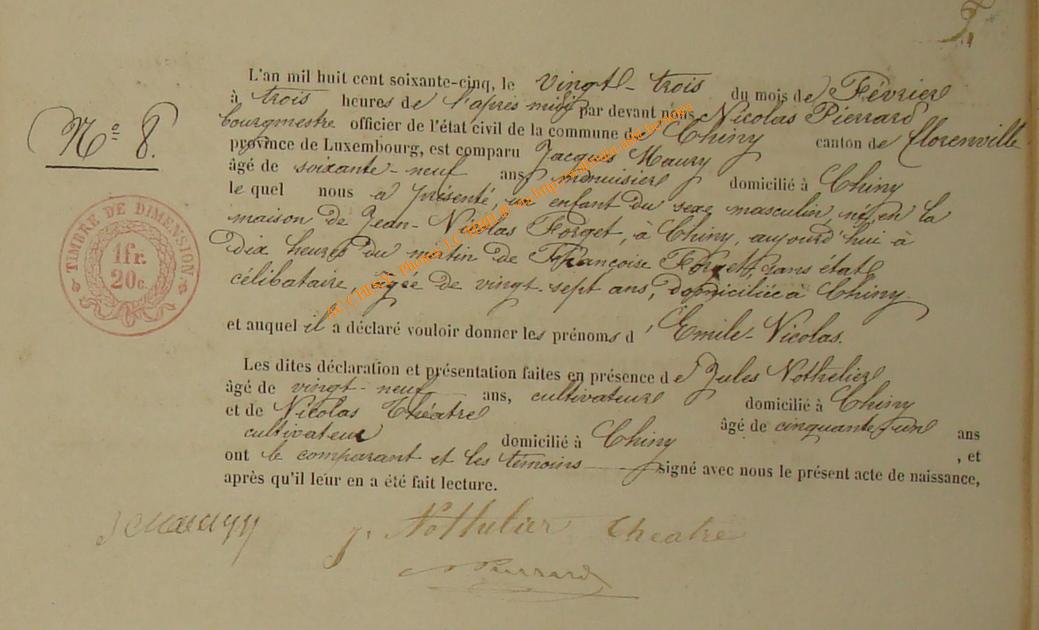 5.
L'an mil huit cent soixante-cinq, le vingt-trois du mois de Février
à trois heures de l'après midi par devant nous Nicolas Pierrard
bourgmestre officier de l'état civil de la commune de Chiny canton de Florenville
province de Luxembourg, est comparu Jacques Maury
âgé de soixante-neuf ans menuisier domicilié à Chiny
le quel nous a présenté un enfant du sexe masculin, né, en la
maison de Jean-Nicolas Forget, à Chiny, aujourd'hui à
dix heures du matin de Françoise Forget, sans état
célibataire, âgée de vingt-sept ans, domiciliée à Chiny
et auquel il a déclaré vouloir donner les prénoms d'Emile-Nicolas.
Les dites déclaration et présentation faites en présence de Jules Nothelier
âgé de vingt-neuf ans, cultivateur domicilié à Chiny
et de Nicolas Théatre âgé de cinquante un ans
cultivateur domicilié à Chiny , et
ont le comparant et les témoins signé avec nous le présent acte de naissance,
après qu'il leur en a été fait lecture.
N° 8.
TIMBRE DE DIMENSION.
1fr.
20c.
J Maury
J. Nothelier Theatre
N Pierrard